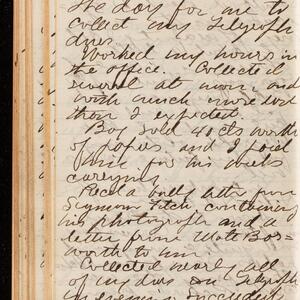 day for me to
collect my Telegraph
dues.
Worked my hours in
the office. Collected
several at noon, and
with much more
than I expected.
Boy sold 40 cts worth
of papers, and I paid
him for his weeks
carrying.
Recd a letter from
Seymour Fitch containing
his photograph and a
letter from Bos-
worth to him.
Collected nearly all
of my dues on Telegraph
in evening